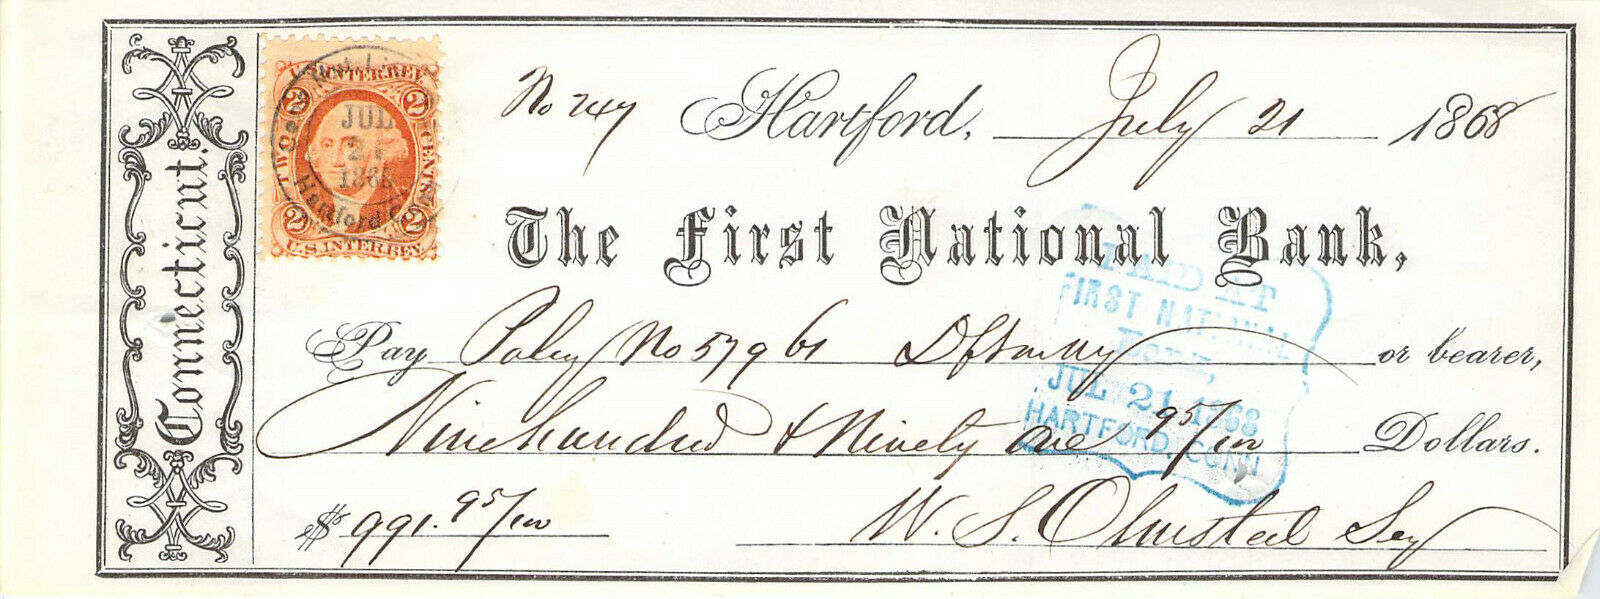 Connecticut.
U.S. INTER. REV.
2 2
TWO CENTS
JUL
21
1868
Hartford
2 2
U.S. INTER. REV.
No 747 Hartford, July 21 1868
The First National Bank,
Pay Policy No 57961 or bearer,
Nine hundred & Ninety One 95/100 Dollars.
$ 991.95/100
W. S. Olmsted Secy
PAID AT
FIRST NATIONAL
BANK,
JUL 21 1868
HARTFORD, CONN